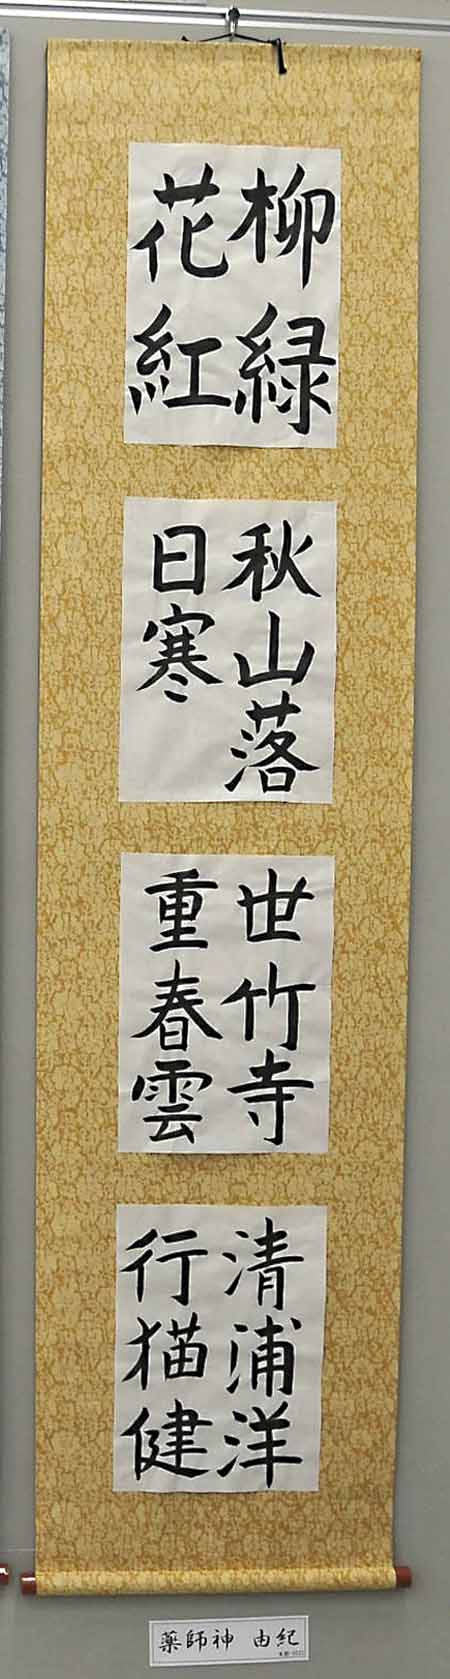 柳緑
花紅
秋山落
日寒
世竹寺
重春雲
清浦洋
行猫健
薬師神 由紀